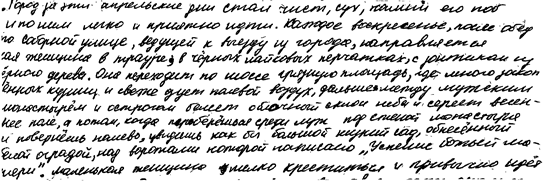 "Город за эти апрельские дни стал чист, сух, камни его поб
и по ним легко и приятно идти. Каждое воскресенье, после обед
по соборной улице, ведущей к выезду из города, направляется
ая женщина в трауре, в чёрных лайковых перчатках, с зонтиком из
ёрного дерева. Она переходит по шоссе грязную площадь, где много закоп
енных кузниц и свежо дует полевой воздух, дальше между мужским
монастырём и острогом белеет облачный склон неба и сереет весен
нее поле, а потом, когда проберёшься среди луж под стеной монастыря
и повернёшь налево, увидишь как бы большой низкий сад, обнесённый
белой оградой, над воротами которой написано "Успение божьей ма
тери". Маленькая женщина мелко крестится и привычно идёт